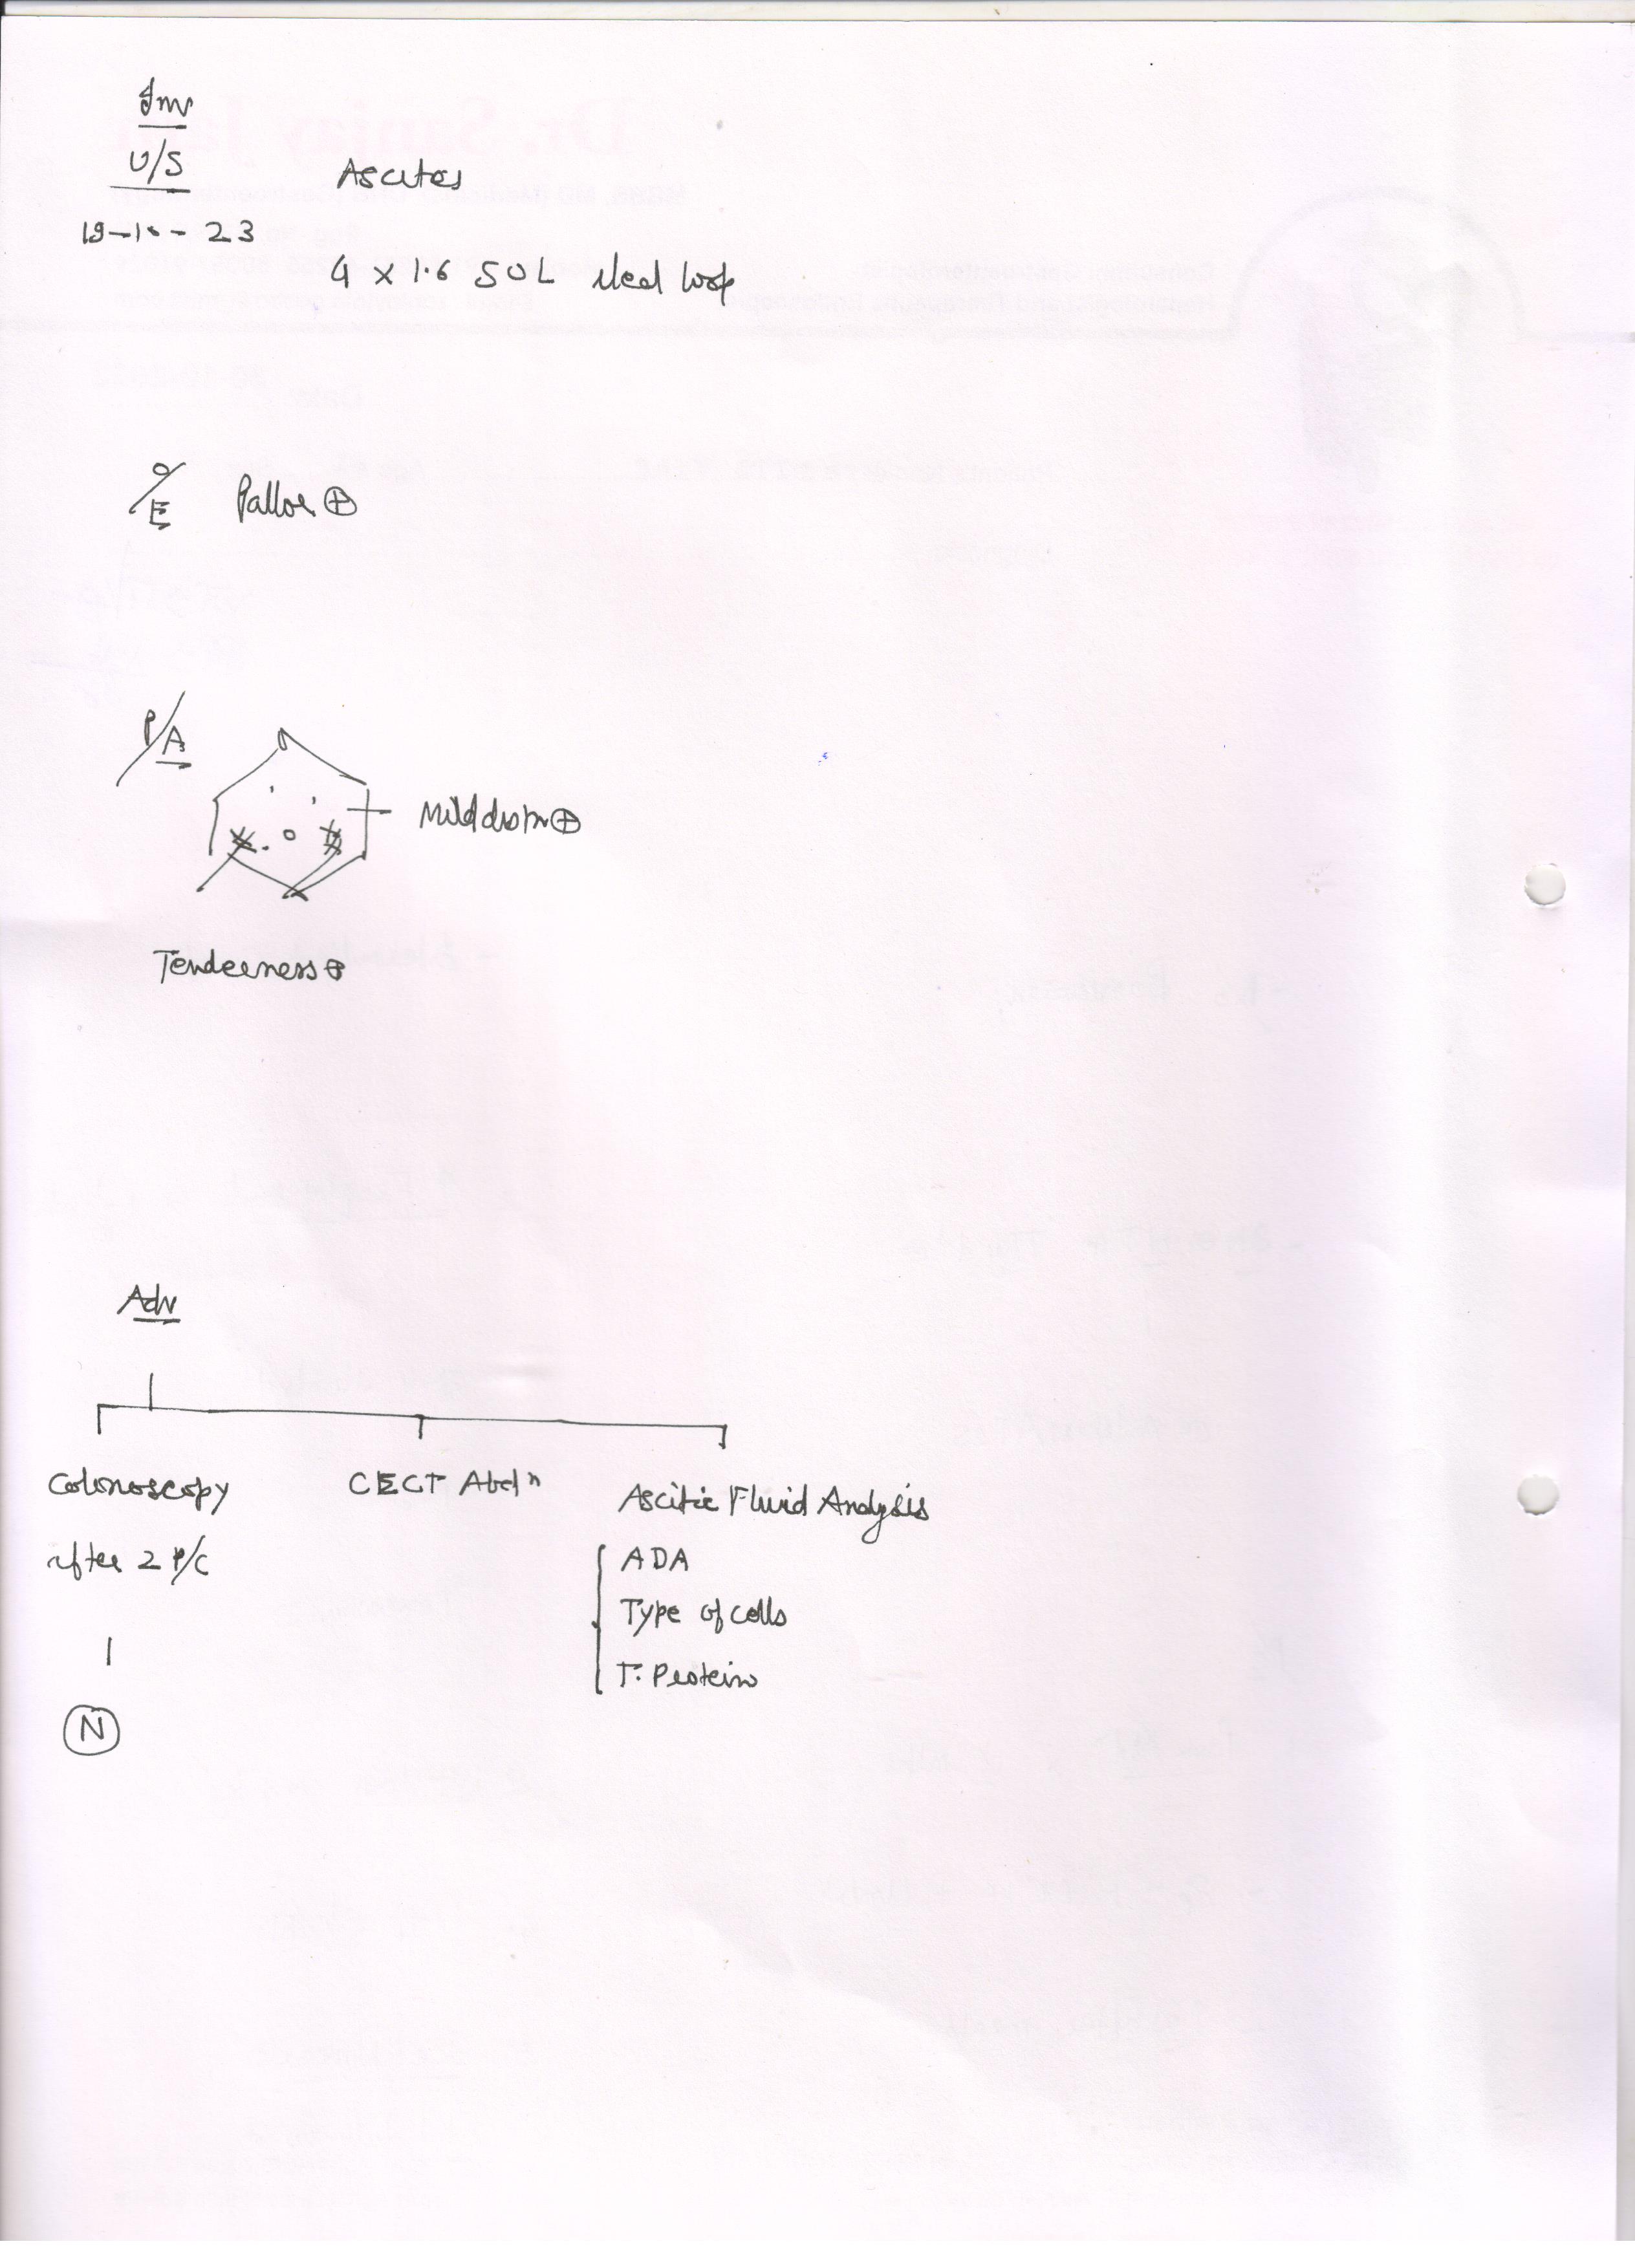 Inv
U/S
Ascites
19-10-23
4 x 1.6 SOL ileal loop
O/E Pallor ⊕
P/A
Mild distn ⊕
Tenderness ⊕
Adv
Colonoscopy
after 2 P/C
N
CECT Abdn
Ascitic Fluid Analysis
ADA
Type of cells
T. Protein